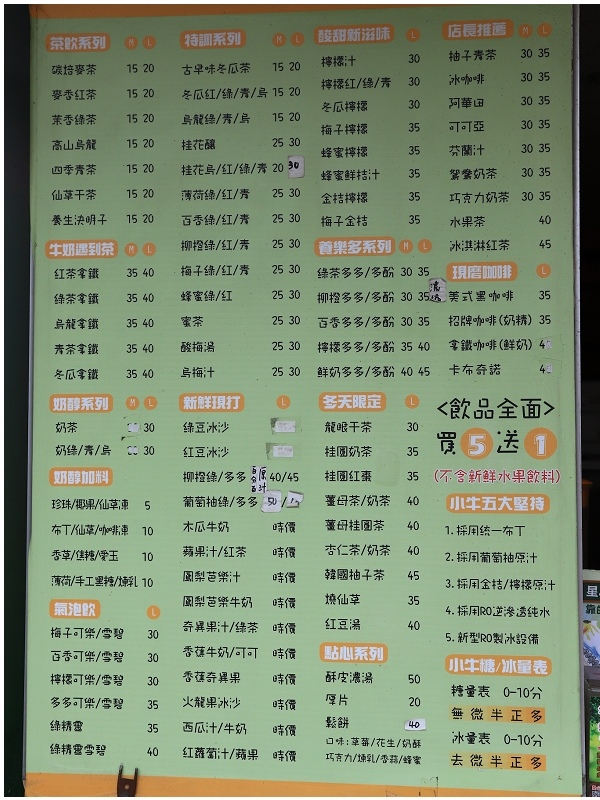 茶飲系列 M L
碳焙麥茶 15 20
麥香紅茶 15 20
茉香綠茶 15 20
高山烏龍 15 20
四季青茶 15 20
仙草干茶 15 20
養生決明子 15 20
牛奶遇到茶 M L
紅茶拿鐵 35 40
綠茶拿鐵 35 40
烏龍拿鐵 35 40
青茶拿鐵 35 40
冬瓜拿鐵 35 40
奶醇系列 M L
奶茶 30
奶綠/青/烏 30
奶醇加料
珍珠/椰果/仙草凍 5
布丁/仙草/咖啡凍 10
香草/焦糖/愛玉 10
薄荷/手工黑糖/煉乳 10
氣泡飲 L
梅子可樂/雪碧 30
百香可樂/雪碧 30
檸檬可樂/雪碧 30
多多可樂/雪碧 35
綠精靈 35
綠精靈雪碧 40
特調系列 M L
古早味冬瓜茶 15 20
冬瓜紅/綠/青/烏 15 20
烏龍綠/青/烏 15 20
桂花釀 25 30
桂花烏/紅/綠/青 20 30
薄荷綠/紅/青 25 30
百香綠/紅/青 25 30
柳橙綠/紅/青 25 30
梅子綠/紅/青 25 30
蜂蜜綠/紅 25 30
蜜茶 25 30
酸梅湯 25 30
烏梅汁 25 30
新鮮現打 L
綠豆冰沙
紅豆冰沙
柳橙綠/多多 百分百原汁 40/45
葡萄柚綠/多多 50/
木瓜牛奶 時價
蘋果汁/紅茶 時價
鳳梨芭樂汁 時價
鳳梨芭樂牛奶 時價
奇異果汁/綠茶 時價
香蕉牛奶/可可 時價
香蕉奇異果 時價
火龍果冰沙 時價
西瓜汁/牛奶 時價
紅蘿蔔汁/蘋果 時價
酸甜新滋味 L
檸檬汁 30
檸檬紅/綠/青 30
冬瓜檸檬 30
梅子檸檬 35
蜂蜜檸檬 35
蜂蜜鮮桔汁 35
金桔檸檬 35
梅子金桔 35
養樂多系列 M L
綠茶多多/多酚 30 35
柳橙多多/多酚 30 35
百香多多/多酚 30 35
檸檬多多/多酚 35 40
鮮奶多多/多酚 40 45
冬天限定 L
龍眼干茶 30
桂圓奶茶 35
桂圓紅棗 35
薑母茶/奶茶 40
薑母桂圓茶 40
杏仁茶/奶茶 40
韓國柚子茶 45
燒仙草 35
紅豆湯 40
點心系列
酥皮濃湯 50
厚片 20
鬆餅 40
口味:草莓/花生/奶酥
巧克力/煉乳/香蒜/蜂蜜
店長推薦 M L
柚子青茶 30 35
冰咖啡 30 35
阿華田 30 35
可可亞 30 35
芬蘭汁 30 35
鴛鴦奶茶 30 35
巧克力奶茶 30 35
水果茶 40
冰淇淋紅茶 45
現磨咖啡 L
美式黑咖啡 35
招牌咖啡(奶精) 35
拿鐵咖啡(鮮奶)
卡布奇諾
<飲品全面>
買5送1
(不含新鮮水果飲料)
小牛五大堅持
1.採用統一布丁
2.採用葡萄柚原汁
3.採用金桔/檸檬原汁
4.採用RO逆滲透純水
5.新型RO製冰設備
小牛糖/冰量表
糖量表 0-10分
無微半正多
冰量表 0-10分
去微半正多